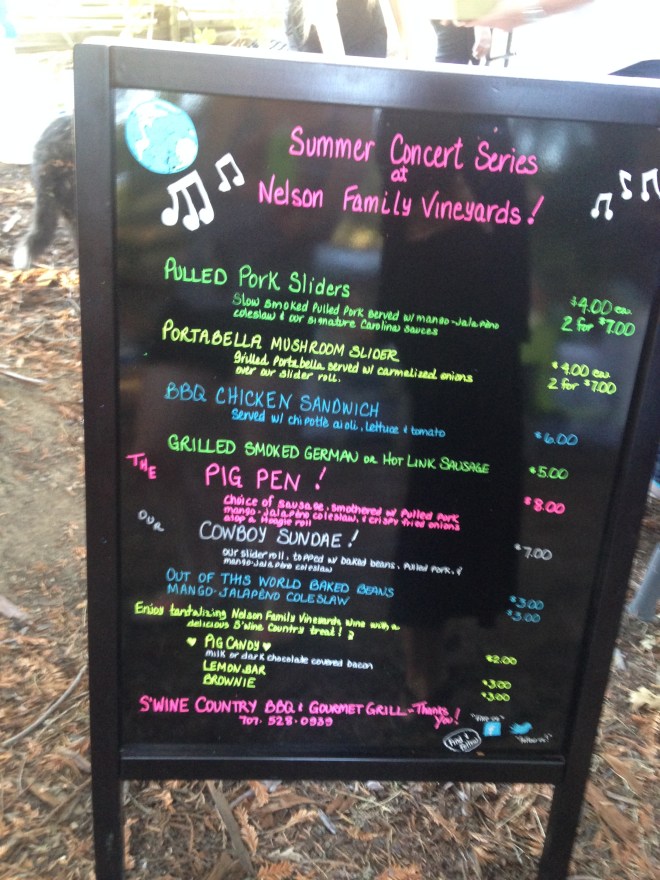 Summer Concert Series
at
Nelson Family Vineyards!
PULLED Pork Sliders
Slow smoked Pulled Pork served w/ mango-Jalapeño
coleslaw & our signature Carolina sauces
$4.00 ea.
2 for $7.00
PORTABELLA MUSHROOM SLIDER
grilled Portabella served w/ carmelized onions
over our slider roll.
$4.00 ea.
2 for $7.00
BBQ CHICKEN SANDWICH
Served w/ chipotlé aioli, lettuce & tomato
$6.00
GRILLED SMOKED GERMAN or HOT LINK SAUSAGE
$5.00
THE PIG PEN!
Choice of Sausage, smothered w/ Pulled Pork
mango-Jalapeño coleslaw, & crispy fried onions
atop a Hoagie roll
$8.00
OUR COWBOY SUNDAE!
our slider roll, topped w/ baked beans, Pulled Pork, &
mango-Jalapeño coleslaw
$7.00
OUT OF THIS WORLD BAKED BEANS $3.00
MANGO-JALAPEÑO COLESLAW $3.00
Enjoy tantalizing Nelson Family Vineyards wine with a
delicious S'wine Country treat!
PIG CANDY $2.00
milk or dark chocolate covered bacon
LEMON BAR $3.00
BROWNIE $3.00
S'WINE COUNTRY BBQ & GOURMET GRILL - Thanks
You!
707.528.0939
Find & Follow